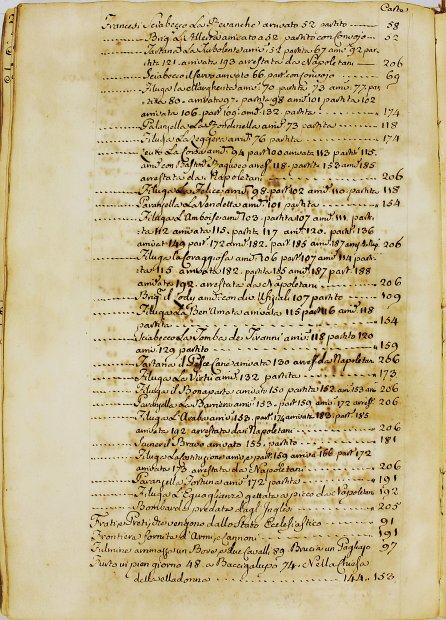 Carte
Francesi Sciabecco La Revanche arrivato 52 partito 58
Brig. L'Allerta arrivato a 52 partito con convojo 52
Tartana La Turbolente arriv. 52 partita 67 arriv. 92 par-
tita 121. arrivata 193 arrestata da Napoletani 206
Sciabecco il arrivato 66 part. con convojo 69
Filuga la Margherita arriv. 70. partita 73 arriv. 77. par
tita 80. arrivata 97. partita 98 arriv. 101 partita 102
arrivata 106. part. 109. arriv. 132. partita 174
Palanzella La Rondinella arriv. 73 partita 118
Filuga La Leggera arriv. 76 partita 174
arriv. 94 part. 100 arrivato 113 part. 115.
arriv. con 118. partito 153 arriv. 185
arrestata da Napoletani 206
Filuga La Felice arriv. 98. part. 102 arriv. 110. partita 118
Paranzella La Vendetta arriv. 101 partita 154
Filuga L'Amboise arriv. 103. partita 107 arriv. 111. parti-
ta 112 arrivata 115. partita 117 arriv. 120. partita 136
arrivat. 149 part. 172 arriv. 182. part. 185 arriv. 187 206
Filuga La Coraggiosa arriv. 106 part. 107 arriv. 114 parti-
ta 115 arrivata 182. partita 185 arriv. 187 part. 188
arrivata 192. arrestata da Napoletani 206
Brig. il Lody arriv. con due Uffiziali 107 partito 109
Filuga La Ben'Amata arrivata 115 part. 116 arriv. 118
partita 154
Sciabecco La Tomba de Tiranni arriv. 118 partito 120
arriv. 129 partito 159
Tartana il Dolce Cane arrivato 130 arrest. da Napoletani 206
Filuga La Virtù arriv. 132 partita 173
Filuga il Bonaparte arrivato 150 partita 152 arr. 153 206
Paranzella La Barriera arriv. 153. part. 159 arriv. 172 arrest. 206
Filuga L'Araba arriv. 153. part. 174 arrivata 183 part. 185
arrivata 192 arrestata da Napoletani 206
il Bravo arrivato 155. partito 181
Filuga La Costituzione arriv. e part. 159 arriva 166 part. 172
arrivata 173 arrestata da Napoletani 206
Paranzella Fortuna arriv. 172 partita 191
Filuga L' gettata a picco da Napoletani 192
Bombarda predata dagl'Inglesi 205
Frati, e Preti, che vengono dallo Stato Ecclesiastico 91
Frontiera fornita d'Armi, e Cannoni 191
Fulmine ammazza un Bove, e due Cavalli 89. Brucia un Pagliajo 97
Furto in pien giorno 48. a Baccigalupo 74. Nella Chiesa
della Madonna 144. 153